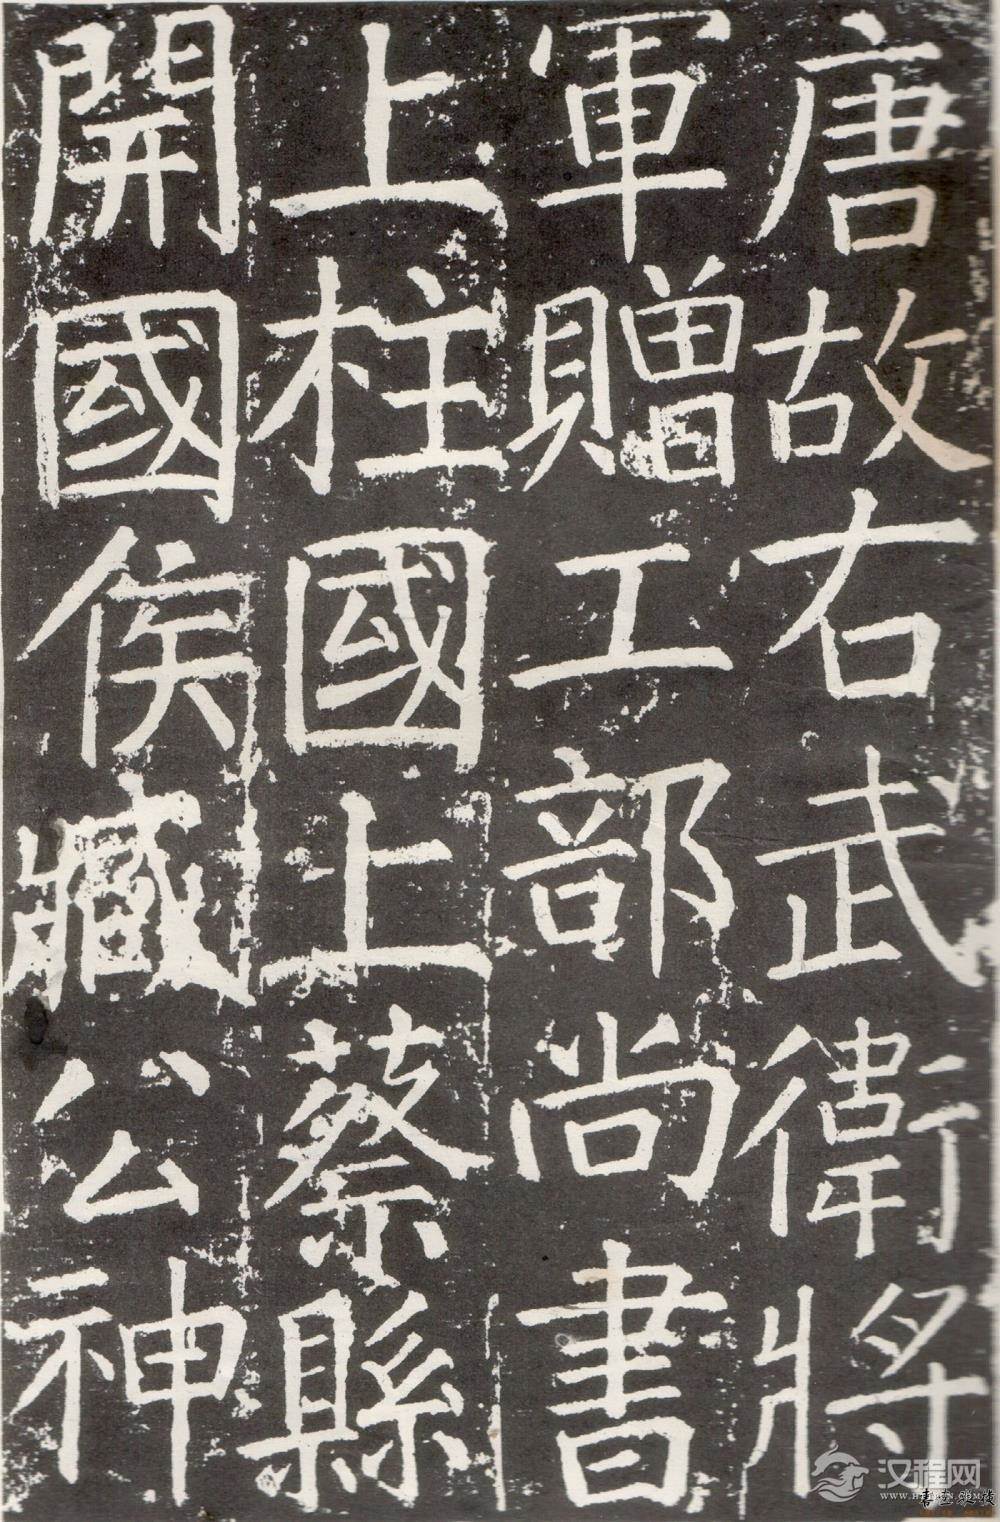 唐故右武衛將
軍贈工部尚書
上柱國上蔡縣
開國侯臧公神
汉程网